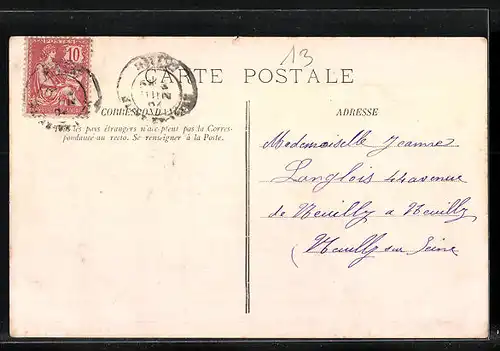 13
10
POSTES
CARTE POSTALE
CORRESPONDANCE
ADRESSE
les pays étrangers n'acceptent pas la Corres-
pondance au recto. Se renseigner à la Poste.
Mademoiselle Jeanne
Langlois 44 avenue
de Neuilly a Neuilly
(Neuilly sur Seine